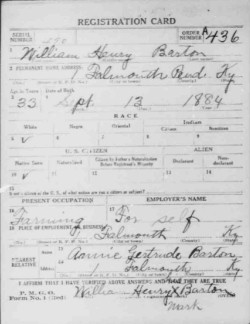 REGISTRATION CARD
SERIAL NUMBER
ORDER NUMBER A 436
William Henry Barton
2 PERMANENT HOME ADDRESS:
1 Falmouth Pend. Ky
Age in Years
Date of Birth
33 Sept. 13 1884
RACE
White
Negro
Oriental
Indian
Citizen
Noncitizen
U. S. CITIZEN
ALIEN
Native Born
Naturalized
Citizen by Father's Naturalization Before Registrant's Majority
Declarant
Non-declarant
If not a citizen of the U. S., of what nation are you a citizen or subject?
PRESENT OCCUPATION
EMPLOYER'S NAME
Farming For self
PLACE OF EMPLOYMENT OR BUSINESS:
Falmouth Ky
NEAREST RELATIVE
Name
Address
Gertrude Barton
Falmouth Ky
I AFFIRM THAT I HAVE VERIFIED ABOVE ANSWERS AND THAT THEY ARE TRUE
P. M. G. O.
Form No. 1 (Red)
William Henry X Barton
Mark